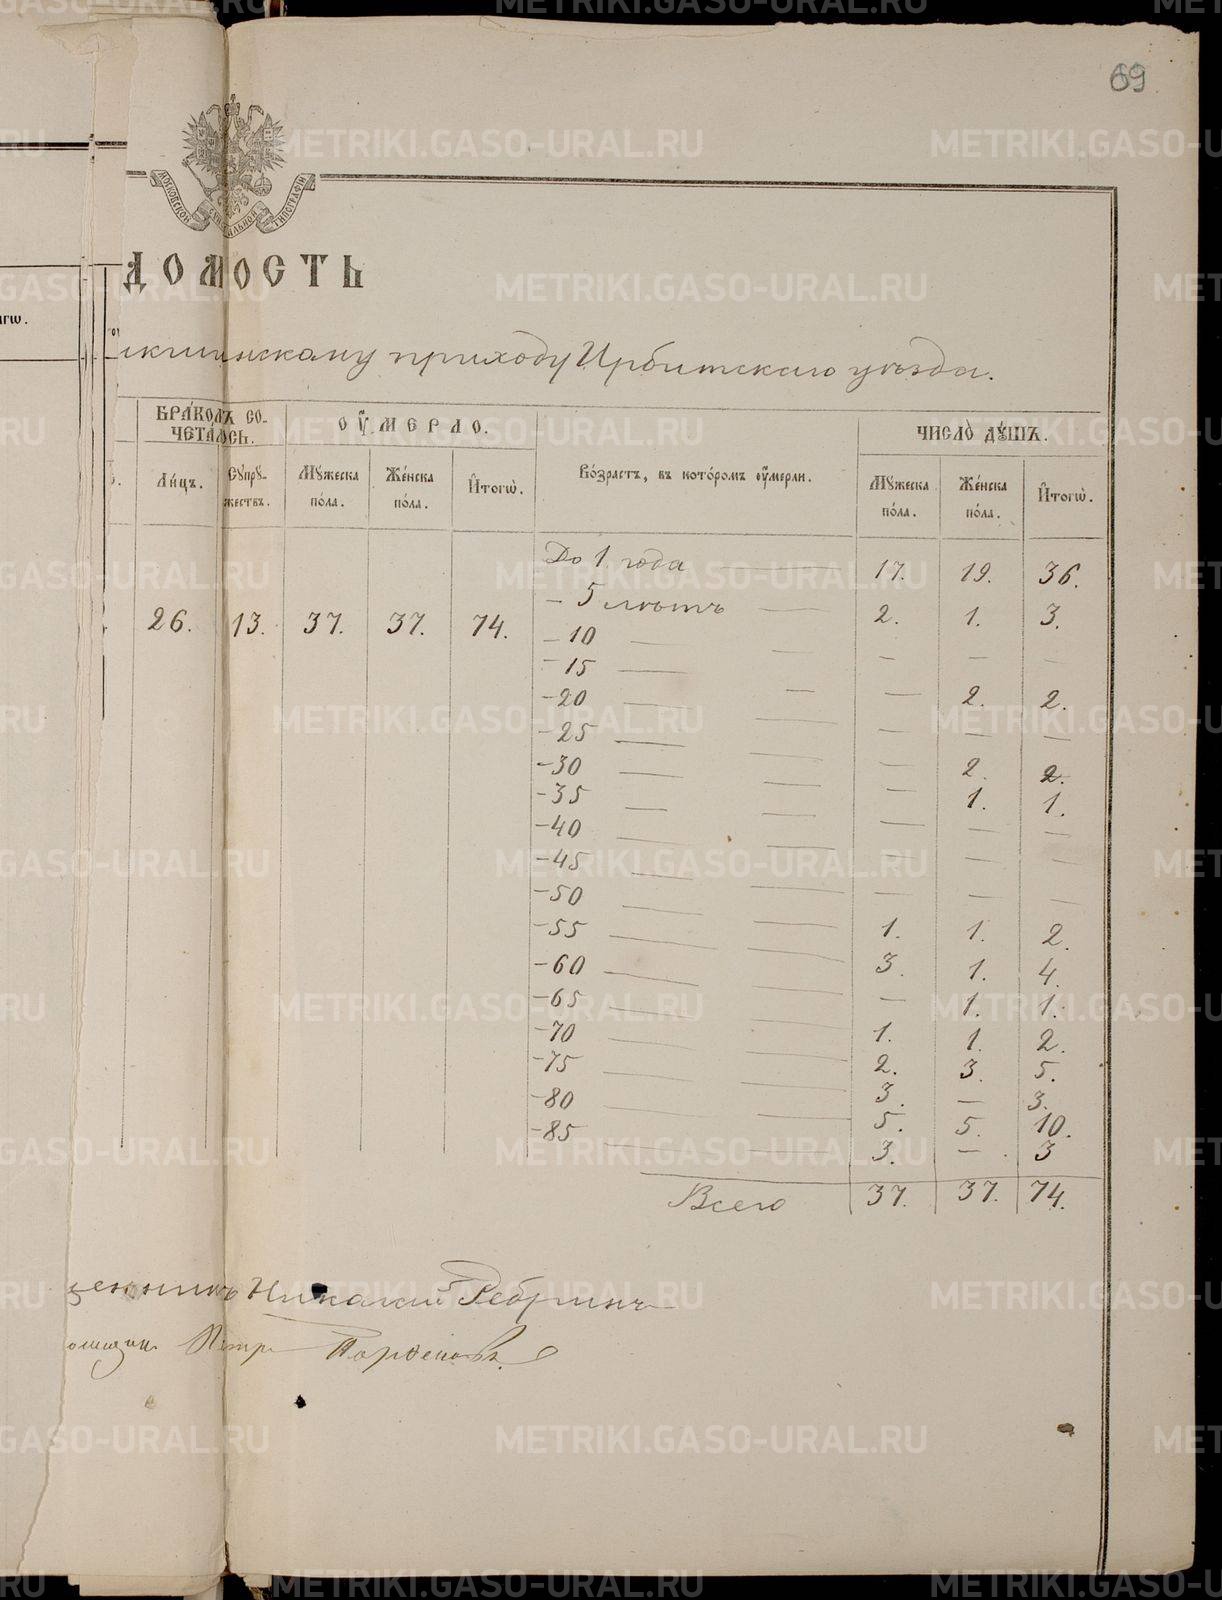 69
МОСКОВСКОЙ СѴНОДАЛЬНОЙ ТИПОГРАФІИ
ДОМОСТЬ
гѡ.
приходу Ирбитскаго уѣзда.
БРАКОМЪ СО-
ЧЕТАЛОСЬ.
ОУМЕРЛО.
ЧИСЛО ДУШЪ.
Лицъ.
Супру-
жествъ.
Мужеска
пола.
Женска
пола.
Итогѡ.
Возрастъ, въ которомъ оумерли.
Мужеска
пола.
Женска
пола.
Итогѡ.
До 1 года 17. 19. 36.
26. 13. 37. 37. 74.
- 5 лѣтъ 2. 1. 3.
-10
-15 — — —
-20 — 2. 2.
-25 — — —
-30 — 2. 2.
-35 — 1. 1.
-40 — — —
-45 — — —
-50 — — —
-55 1. 1. 2.
-60 3. 1. 4.
-65 — 1. 1.
-70 1. 1. 2.
-75 2. 3. 5.
-80 3. — 3.
-85 5. 5. 10.
3. — 3
Всего 37. 37. 74.
щенникъ Николай
Петръ
METRIKI.GASO-URAL.RU